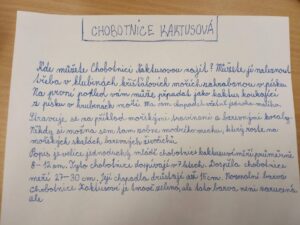 CHOBOTNICE KAKTUSOVÁ
Kde můžete Chobotnici Kaktusovou najít? Můžete jí naleznout
třeba v hlubinách křišťálových mořích zahrabanou v písku
Na první pohled vám může připadat jako kaktus koukající
z písku v hlubinách moří. Má osm chapadel
Stravuje se na příklad mořskými travinami a barevnými korály.
Někdy se možná sem tam sobne modrého muchu, který roste na
mořských skalách, barevných
Popis je velice jednoduchý, mládě chobotnice kaktusové měří průměrně
8 - 12 cm. Tyto chobotnice dospívají v 7 letech. Dospělá chobotnice
měří 27 - 30 cm. Její chapadla dorůstají až 15 cm. Normální barva
Chobotnice Kaktusové je tmavě zelená, ale tato barva není zaručená
ale